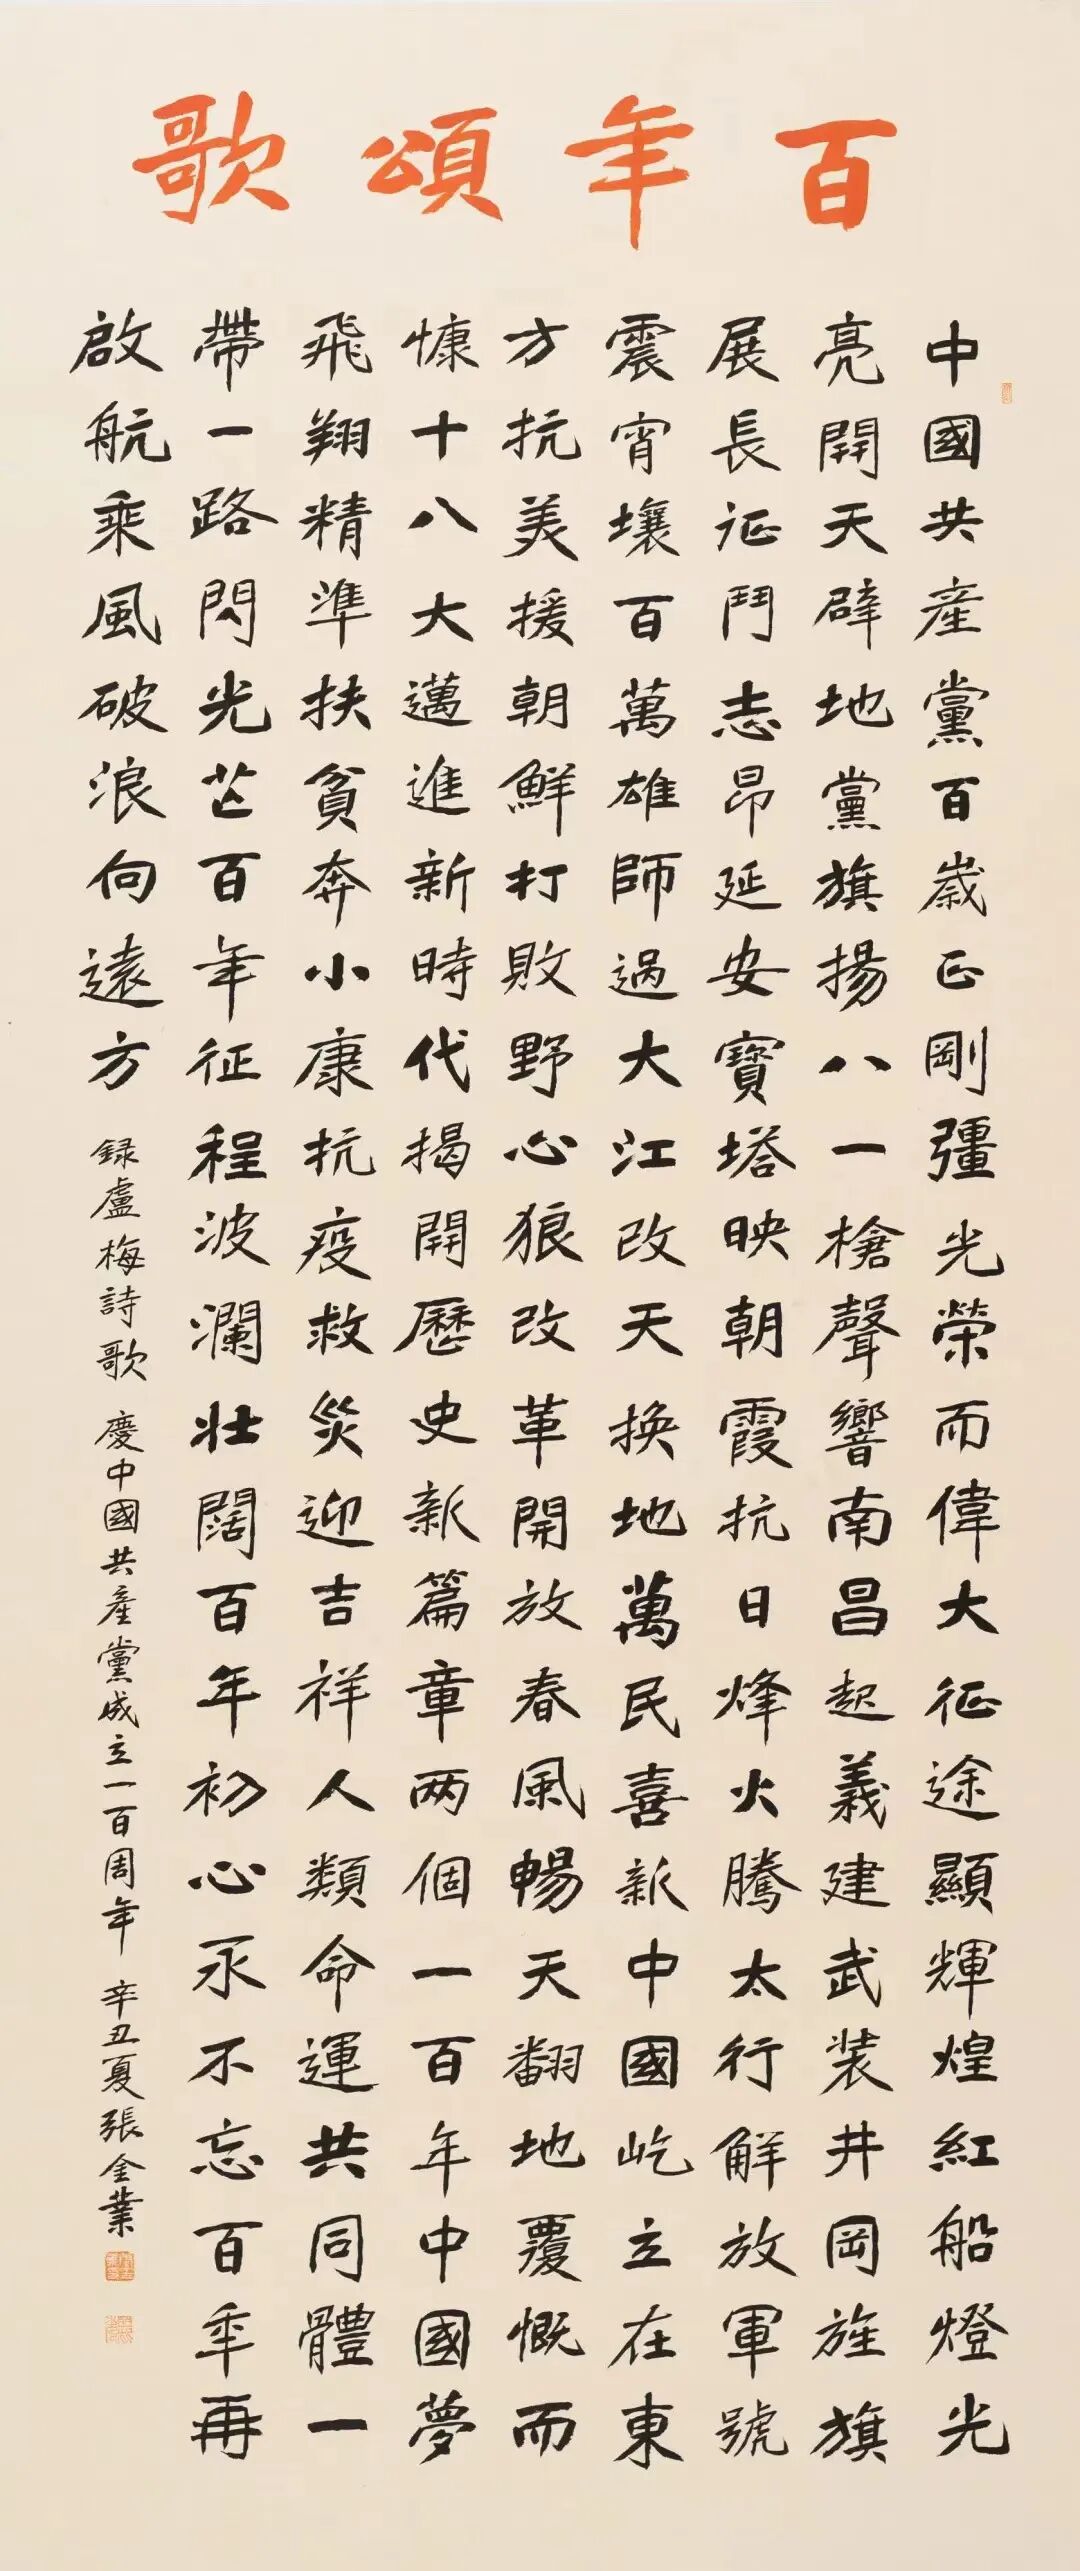 百年頌歌
中國共產黨百歲正剛彊光榮而偉大征途顯輝煌紅船燈光
亮開天辟地黨旗揚八一槍聲響南昌起義建武裝井岡旌旗
展長征鬥志昂延安寶塔映朝霞抗日烽火騰太行解放軍號
震宵壤百萬雄師過大江改天換地萬民喜新中國屹立在東
方抗美援朝鮮打敗野心狼改革開放春風暢天翻地覆慨而
慷十八大邁進新時代揭開歷史新篇章两個一百年中國夢
飛翔精準扶貧奔小康抗疫救災迎吉祥人類命運共同體一
帶一路閃光芒百年征程波瀾壯闊百年初心永不忘百年再
啟航乘風破浪向遠方
録盧梅詩歌 慶中國共產黨成立一百周年 辛丑夏張全業